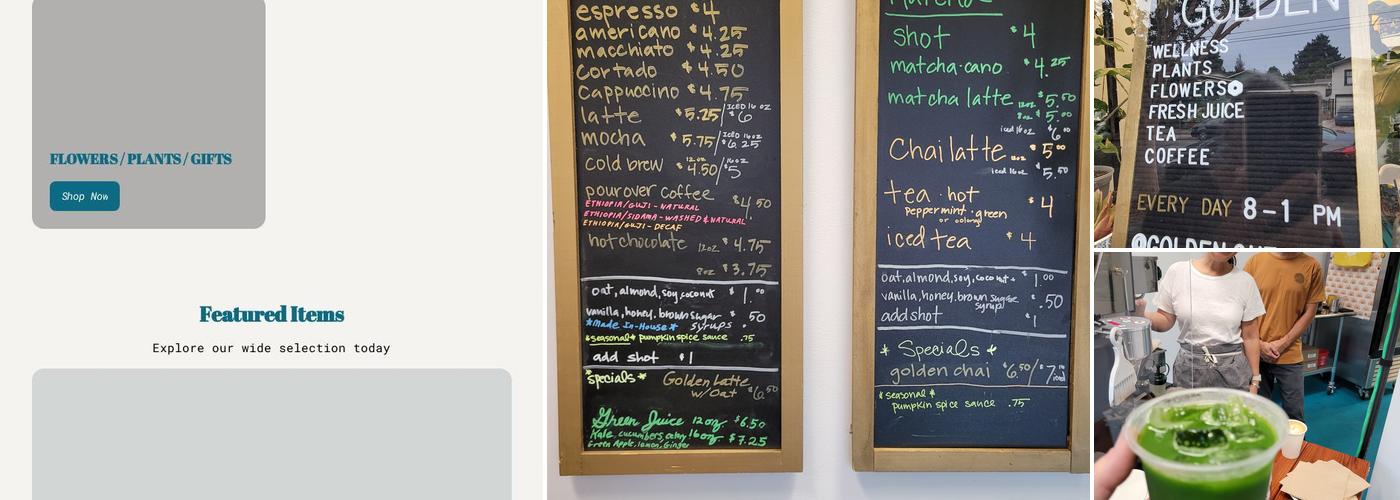 FLOWERS / PLANTS / GIFTS
Shop Now
Featured Items
Explore our wide selection today
espresso $4
americano $4.25
macchiato $4.25
Cortado $4.50
Cappuccino $4.75
latte $5.25/ICED 16 OZ $6
mocha $5.75/ICED 16 OZ $6.25
cold brew 12oz $4.50/16oz $5
pourover coffee $4.50
ETHIOPIA/GUJI - NATURAL
ETHIOPIA/SIDAMA - WASHED & NATURAL
ETHIOPIA/GUJI - DECAF
hot chocolate 12oz $4.75
8oz $3.75
oat, almond, soy, coconut $1.00
vanilla, honey, brown sugar .50
*Made In-House* syrups
*seasonal* pumpkin spice sauce .75
add shot $1
*specials* Golden Latte
w/Oat $6.50
Green Juice 12oz $6.50
Kale, cucumbers, celery 16oz $7.25
Green Apple, lemon, Ginger
shot $4
matcha-cano $4.25
matcha latte 12oz $5.50
8oz $5.00
iced 16oz $6.00
Chai latte 12oz $5.00
iced 16oz $5.50
tea - hot $4
peppermint - green
or oolong
iced tea $4
oat, almond, soy, coconut $1.00
vanilla, honey, brown sugar .50
syrup
add shot $1
* Specials *
golden chai $6.50/$7
iced
*seasonal*
pumpkin spice sauce .75
GOLDEN
WELLNESS
PLANTS
FLOWERS
FRESH JUICE
TEA
COFFEE
EVERY DAY 8-1 PM